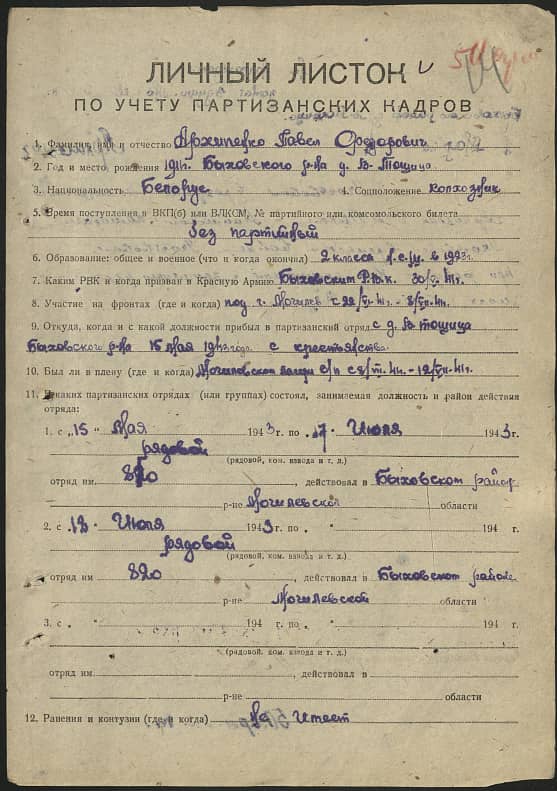 ЛИЧНЫЙ ЛИСТОК
ПО УЧЕТУ ПАРТИЗАНСКИХ КАДРОВ
1. Фамилия, имя и отчество Архипенко Павел Федорович
2. Год и место рождения Быховского р-на д. В-Тощица
3. Национальность Белорус 4. Соцположение колхозник
5. Время поступления в ВКП(б) или ВЛКСМ, № партийного или комсомольского билета
без партийный
6. Образование: общее и военное (что и когда окончил) 2 класса в 1923г.
7. Каким РВК и когда призван в Красную Армию Быховским Р.В.К. 30/VI-41г.
8. Участие на фронтах (где и когда) под г. Могилев с
9. Откуда, когда и с какой должности прибыл в партизанский отряд с д. В-Тощица
Быховского р-на 15 мая 1943 года с крестьянства
10. Был ли в плену (где и когда) Могилевском лагере
11. В каких партизанских отрядах (или группах) состоял, занимаемая должность и район действия
отряда:
1. с „15" Мая 1943 г. по 7. Июля 1943 г.
рядовой
(рядовой, ком. взвода и т. д.)
отряд им 820, действовал в Быховском районе
р-не Могилевской области
2. с 12. Июля 1943 г. по " 194 г.
рядовой
(рядовой, ком. взвода и т. д.)
отряд им 820, действовал в Быховском районе
р-не Могилевской области
3. с " 194 г. по " 194 г.
(рядовой, ком. взвода и т. д.)
отряд им , действовал в
р-не области
12. Ранения и контузии (где и когда) Не имеет